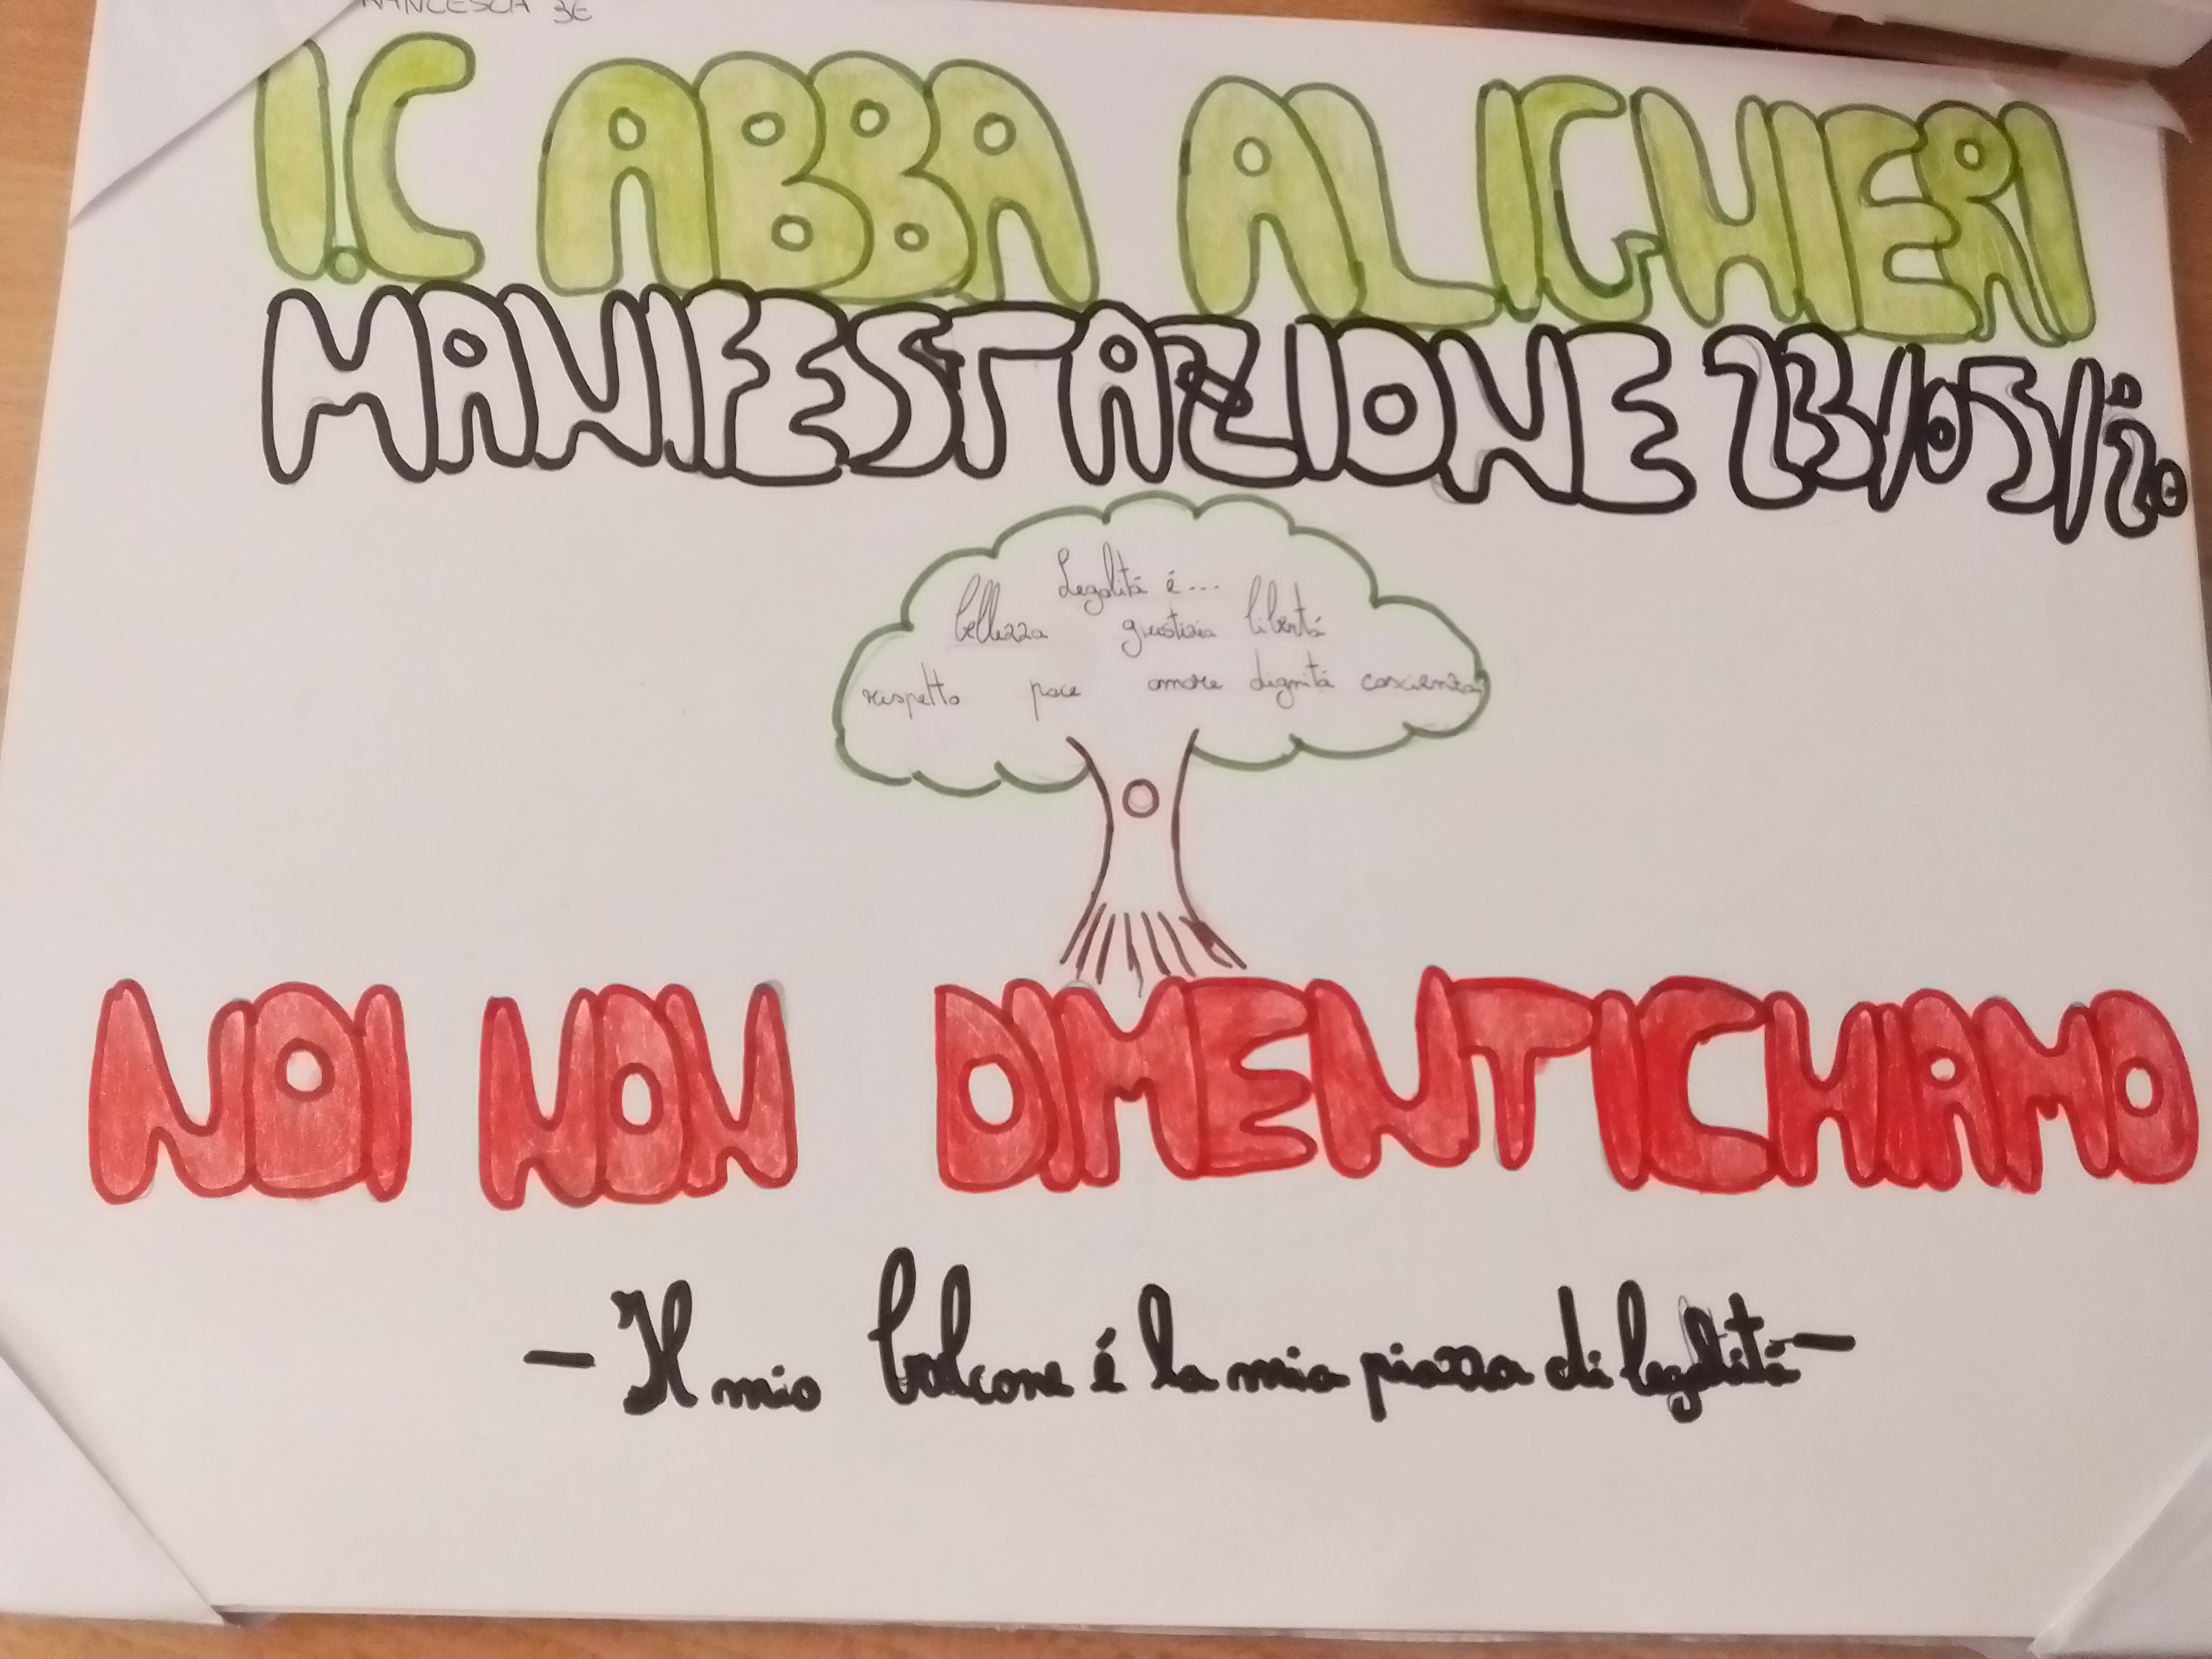 FRANCESCA 3E
I.C ABBA ALIGHIERI
MANIFESTAZIONE 23/05/20
Legalitá é...
bellezza giustizia libertá
rispetto pace amore dignitá coscienza
NOI NON DIMENTICHIAMO
- Il mio balcone é la mia piazza di legalitá -